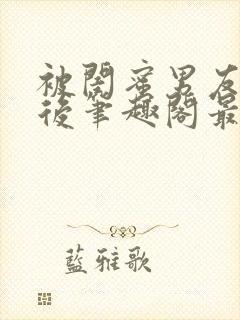 被閨蜜男友
後筆趣閣最
藍雅歌